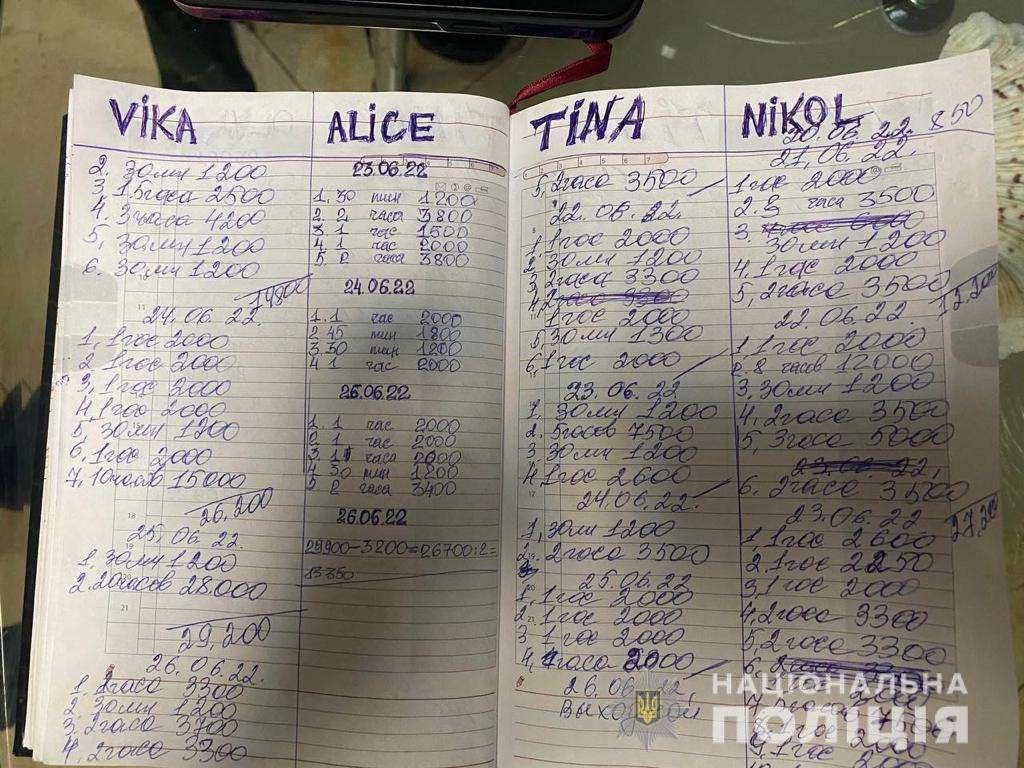 VIKA
2. 30 мин 1200
3. 1,5 часа 2500
4. 3 часа 4200
5, 30 мин 1200
6. 30 мин 1200
14800
24.06.22.
1, 1 час 2000
2 1 час 2000
3, 1 час 2000
4, 1 час 2000
5 30 мин 1200
6, 1 час 2000
7, 10 часов 15000
26,200
25.06.22.
1, 30 мин 1200
2. 20 часов 28.000
29,200
26.06.22.
1. 2 часа 3300
2. 30 мин 1200
3. 2 часа 3700
4, 2 часа 3300
ALICE
23.06.22
1. 30 мин 1200
2. 2 часа 3800
3 1 час 1500
4. 1 час 2000
5. 2 часа 3800
24.06.22
1. 1 час 2000
2 45 мин 1800
3. 30 мин 1200
4 1 час 2000
25.06.22
1. 1 час 2000
2 1 час 2000
3. 1 часа 2000
4 30 мин 1200
5 2 часа 3400
26.06.22
29900-3200=26700:2=
13350
TINA
5, 2 часа 3500
22.06.22.
1, 1 час 2000
2, 30 мин 1200
3, 2 часа 3300
4. 2 часа
1 час 2000
5, 30 мин 1300
6, 1 час 2000
23.06.22
1. 30 мин 1200
2. 5 часов 7500
3 30 мин 1200
4. 1 час 2600
24.06.22.
1, 30 мин 1200
2 2 часа 3500
25.06.22
1, 1 час 2000
2. 1 час 2000
3 1 час 2000
4, часа 2000
26.06.22,
Выходной
NIKOL
20.06.22. 850
21,06.22,
1 час 2000
2. 2 часа 3500
3.
30 мин 1200
4, 1 час 2000
5, 2 часа 3500
22.06.22.
1, 1 час 2000
2. 8 часов 12000
3, 30 мин 1200
4, 2 часа 3500
5, 3 часа 5000
23.06.22,
6. 2 часа 3500
27,200
23.06.22
1, 1 час 2600
2. 1 час 2250
3, 1 час 2000
4, 2 часа 3300
5, 2 часа 3300
6,
9, 1 час 2000
НАЦІОНАЛЬНА
ПОЛІЦІЯ